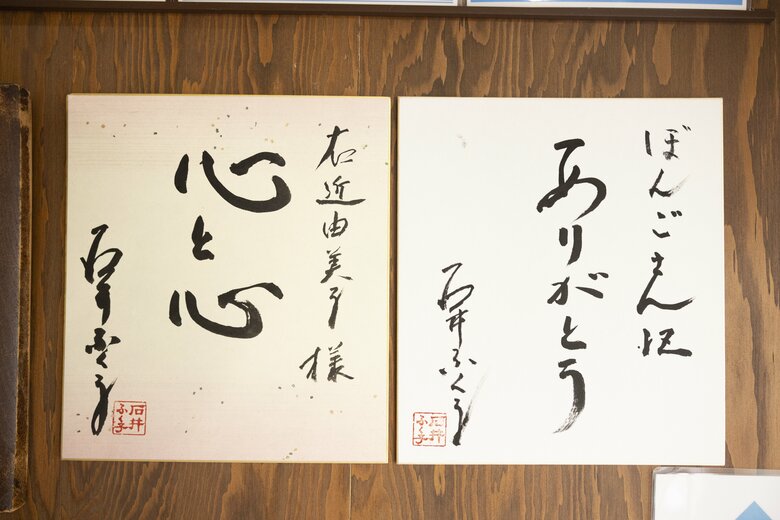 ぼんごさん江
ありがとう
石井ふく子
石井
ふく子
右近由美子様
心と心
石井ふく子
石井
ふく子